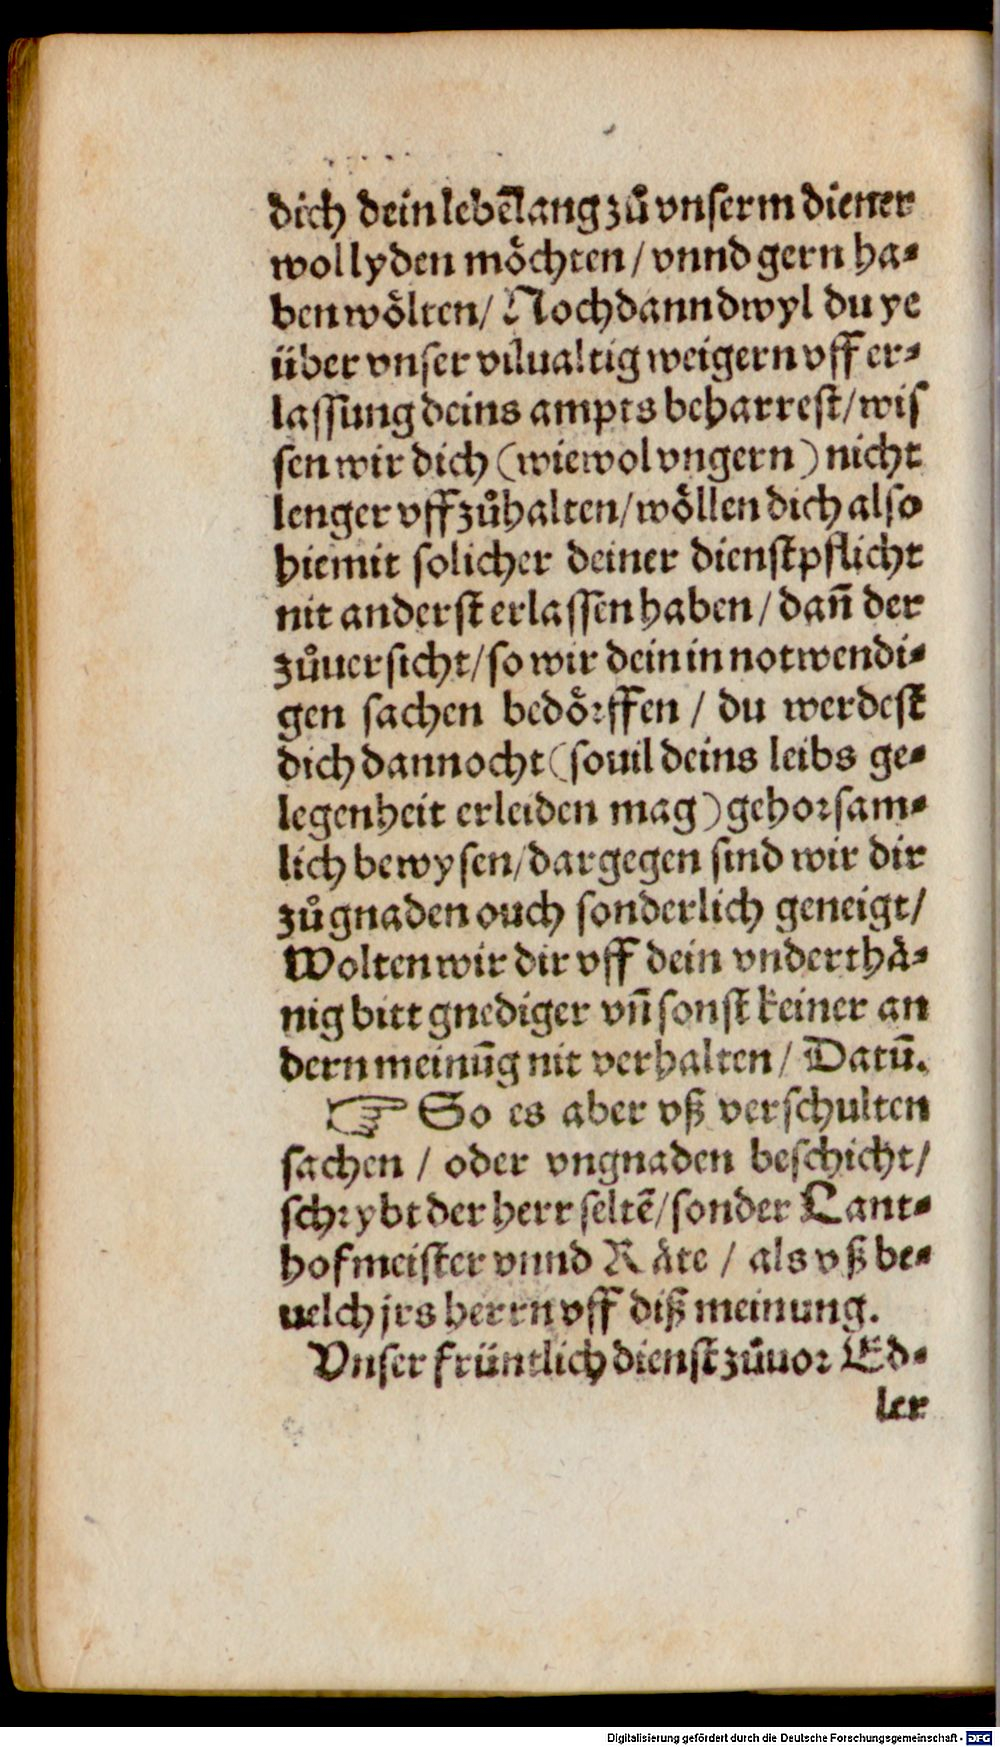 dich dein lebēlang zů vnserm diener
wol lyden möchten / vnnd gern ha⸗
ben wölten / Noch dann dwyl du ye
über vnser viluältig weigern vff er⸗
lassung deins ampts beharrest / wis
sen wir dich (wiewol vngern) nicht
lenger vffzůhalten / wöllen dich also
hiemit solicher deiner dienstpflicht
nit anderst erlassen haben / dañ der
zůuersicht / so wir dein in notwendi⸗
gen sachen bedörffen / du werdest
dich dannocht (souil deins leibs ge⸗
legenheit erleiden mag) gehorsam⸗
lich bewysen / dargegen sind wir dir
zů gnaden ouch sonderlich geneigt /
Wolten wir dir vff dein vnderthä⸗
nig bitt gnediger vñ sonst keiner an
dern meinūg nit verhalten / Datū.
☞ So es aber vß verschulten
sachen / oder vngnaden beschicht /
schrybt der herr seltē / sonder Lant⸗
hofmeister vnnd Räte / als vß be⸗
uelch jrs herrn vff diß meinung.
Vnser früntlich dienst zůuor Ed⸗
ler
Digitalisierung gefördert durch die Deutsche Forschungsgemeinschaft - DFG